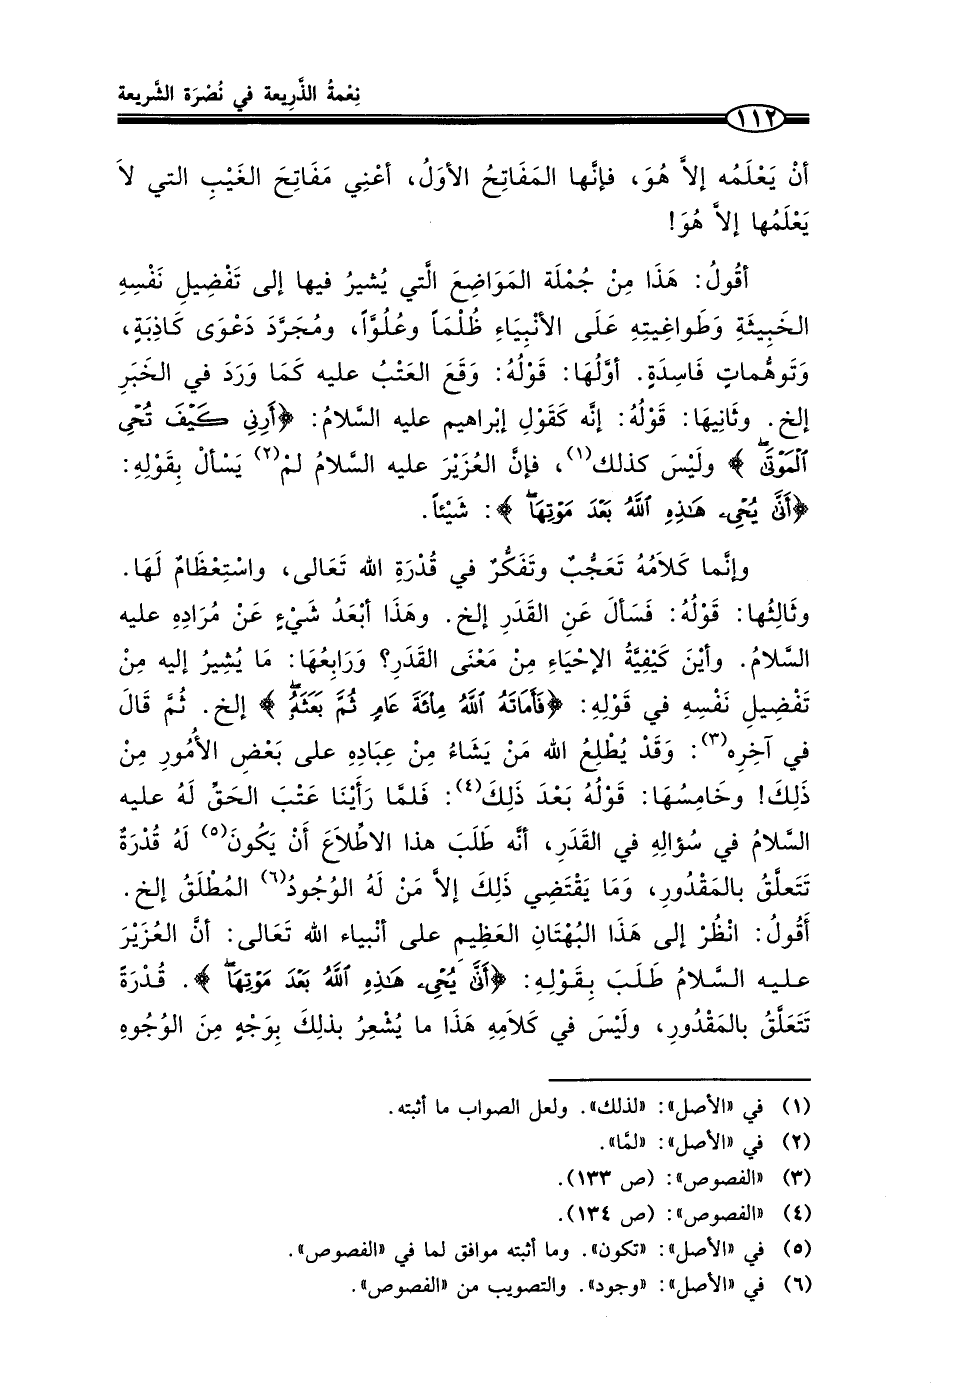 نِعْمةُ الذَّرِيعة في نُصْرَة الشَّريعة
١١٢
أنْ يَعْلَمُه إلاَّ هُوَ، فإنَّها المَفَاتِحُ الأوَلُ، أعْنِي مَفَاتِحَ الغَيْبِ التي لاَ
يَعْلَمُها إلاَّ هُوَ!
أقُولُ: هَذَا مِنْ جُمْلَة المَوَاضِعَ الَّتي يُشيرُ فيها إلى تَفْضِيلِ نَفْسِهِ
الخَبِيثَةِ وَطَواغِيتِهِ عَلَى الأنْبِيَاءِ ظُلْمَاً وعُلُوَّاً، ومُجَرَّدَ دَعْوَى كَاذِبَةٍ،
وَتَوهُّماتٍ فَاسِدَةٍ. أوَّلُهَا: قَوْلُهُ: وَقَعَ العَتْبُ عليه كَمَا وَرَدَ في الخَبَرِ
إلخ. وثَانِيهَا: قَوْلُهُ: إنَّه كَقَوْلِ إبْراهيم عليه السَّلامُ: ﴿أَرِنِي كَيْفَ تُحْيِ
ٱلْمَوْتَىٰۖ﴾ ولَيْسَ كذلك(١)، فإنَّ العُزَيْرَ عليه السَّلامُ لمْ(٢) يَسْألْ بِقَولِهِ:
﴿أَنَّىٰ يُحْيِۦ هَٰذِهِ ٱللَّهُ بَعْدَ مَوْتِهَاۖ﴾: شَيْئاً.
وإنَّما كَلاَمُهُ تَعَجُّبٌ وتَفَكُّرٌ في قُدْرَةِ الله تَعَالى، واسْتِعْظَامٌ لَهَا.
وثَالِثُها: قَوْلُهُ: فَسَألَ عَنِ القَدَرِ إلخ. وهَذَا أبْعَدُ شَيْءٍ عَنْ مُرَادِهِ عليه
السَّلامُ. وأيْنَ كَيْفِيَّةُ الإحْيَاءِ مِنْ مَعْنَى القَدَرِ؟ وَرَابِعُهَا: مَا يُشِيرُ إليه مِنْ
تَفْضِيلِ نَفْسِهِ في قَوْلِهِ: ﴿فَأَمَاتَهُ ٱللَّهُ مِائَةَ عَامٍ ثُمَّ بَعَثَهُۥۖ﴾ إلخ. ثُمَّ قَالَ
في آخِرِه(٣): وَقَدْ يُطْلِعُ الله مَنْ يَشَاءُ مِنْ عِبَادِهِ على بَعْضِ الأُمُورِ مِنْ
ذَلِكَ! وخَامِسُهَا: قَوْلُهُ بَعْدَ ذَلِكَ(٤): فَلمَّا رَأيْنَا عَتْبَ الحَقِّ لَهُ عليه
السَّلامُ في سُؤالِهِ في القَدَرِ، أنَّه طَلَبَ هذا الاطِّلاَعَ أَنْ يَكُونَ(٥) لَهُ قُدْرَةٌ
تَتَعلَّقُ بالمَقْدُورِ، وَمَا يَقْتَضِي ذَلِكَ إلاَّ مَنْ لَهُ الوُجُودُ(٦) المُطْلَقُ إلخ.
أَقُولُ: انْظُرْ إلى هَذَا البُهْتَانِ العَظِيمِ على أنْبياء الله تَعَالى: أنَّ العُزَيْرَ
عليه السَّلامُ طَلَبَ بِقَوْلِهِ: ﴿أَنَّىٰ يُحْيِۦ هَٰذِهِ ٱللَّهُ بَعْدَ مَوْتِهَاۖ﴾. قُدْرَةً
تَتَعَلَّقُ بالمَقْدُورِ، ولَيْسَ في كَلاَمِهِ هَذَا ما يُشْعِرُ بذلِكَ بِوَجْهٍ مِنَ الوُجُوهِ
(١) في «الأصل»: «لذلك». ولعل الصواب ما أثبته.
(٢) في «الأصل»: «لمَّا».
(٣) «الفصوص»: (ص ١٣٣).
(٤) «الفصوص»: (ص ١٣٤).
(٥) في «الأصل»: «تكون». وما أثبته موافق لما في «الفصوص».
(٦) في «الأصل»: «وجود». والتصويب من «الفصوص».